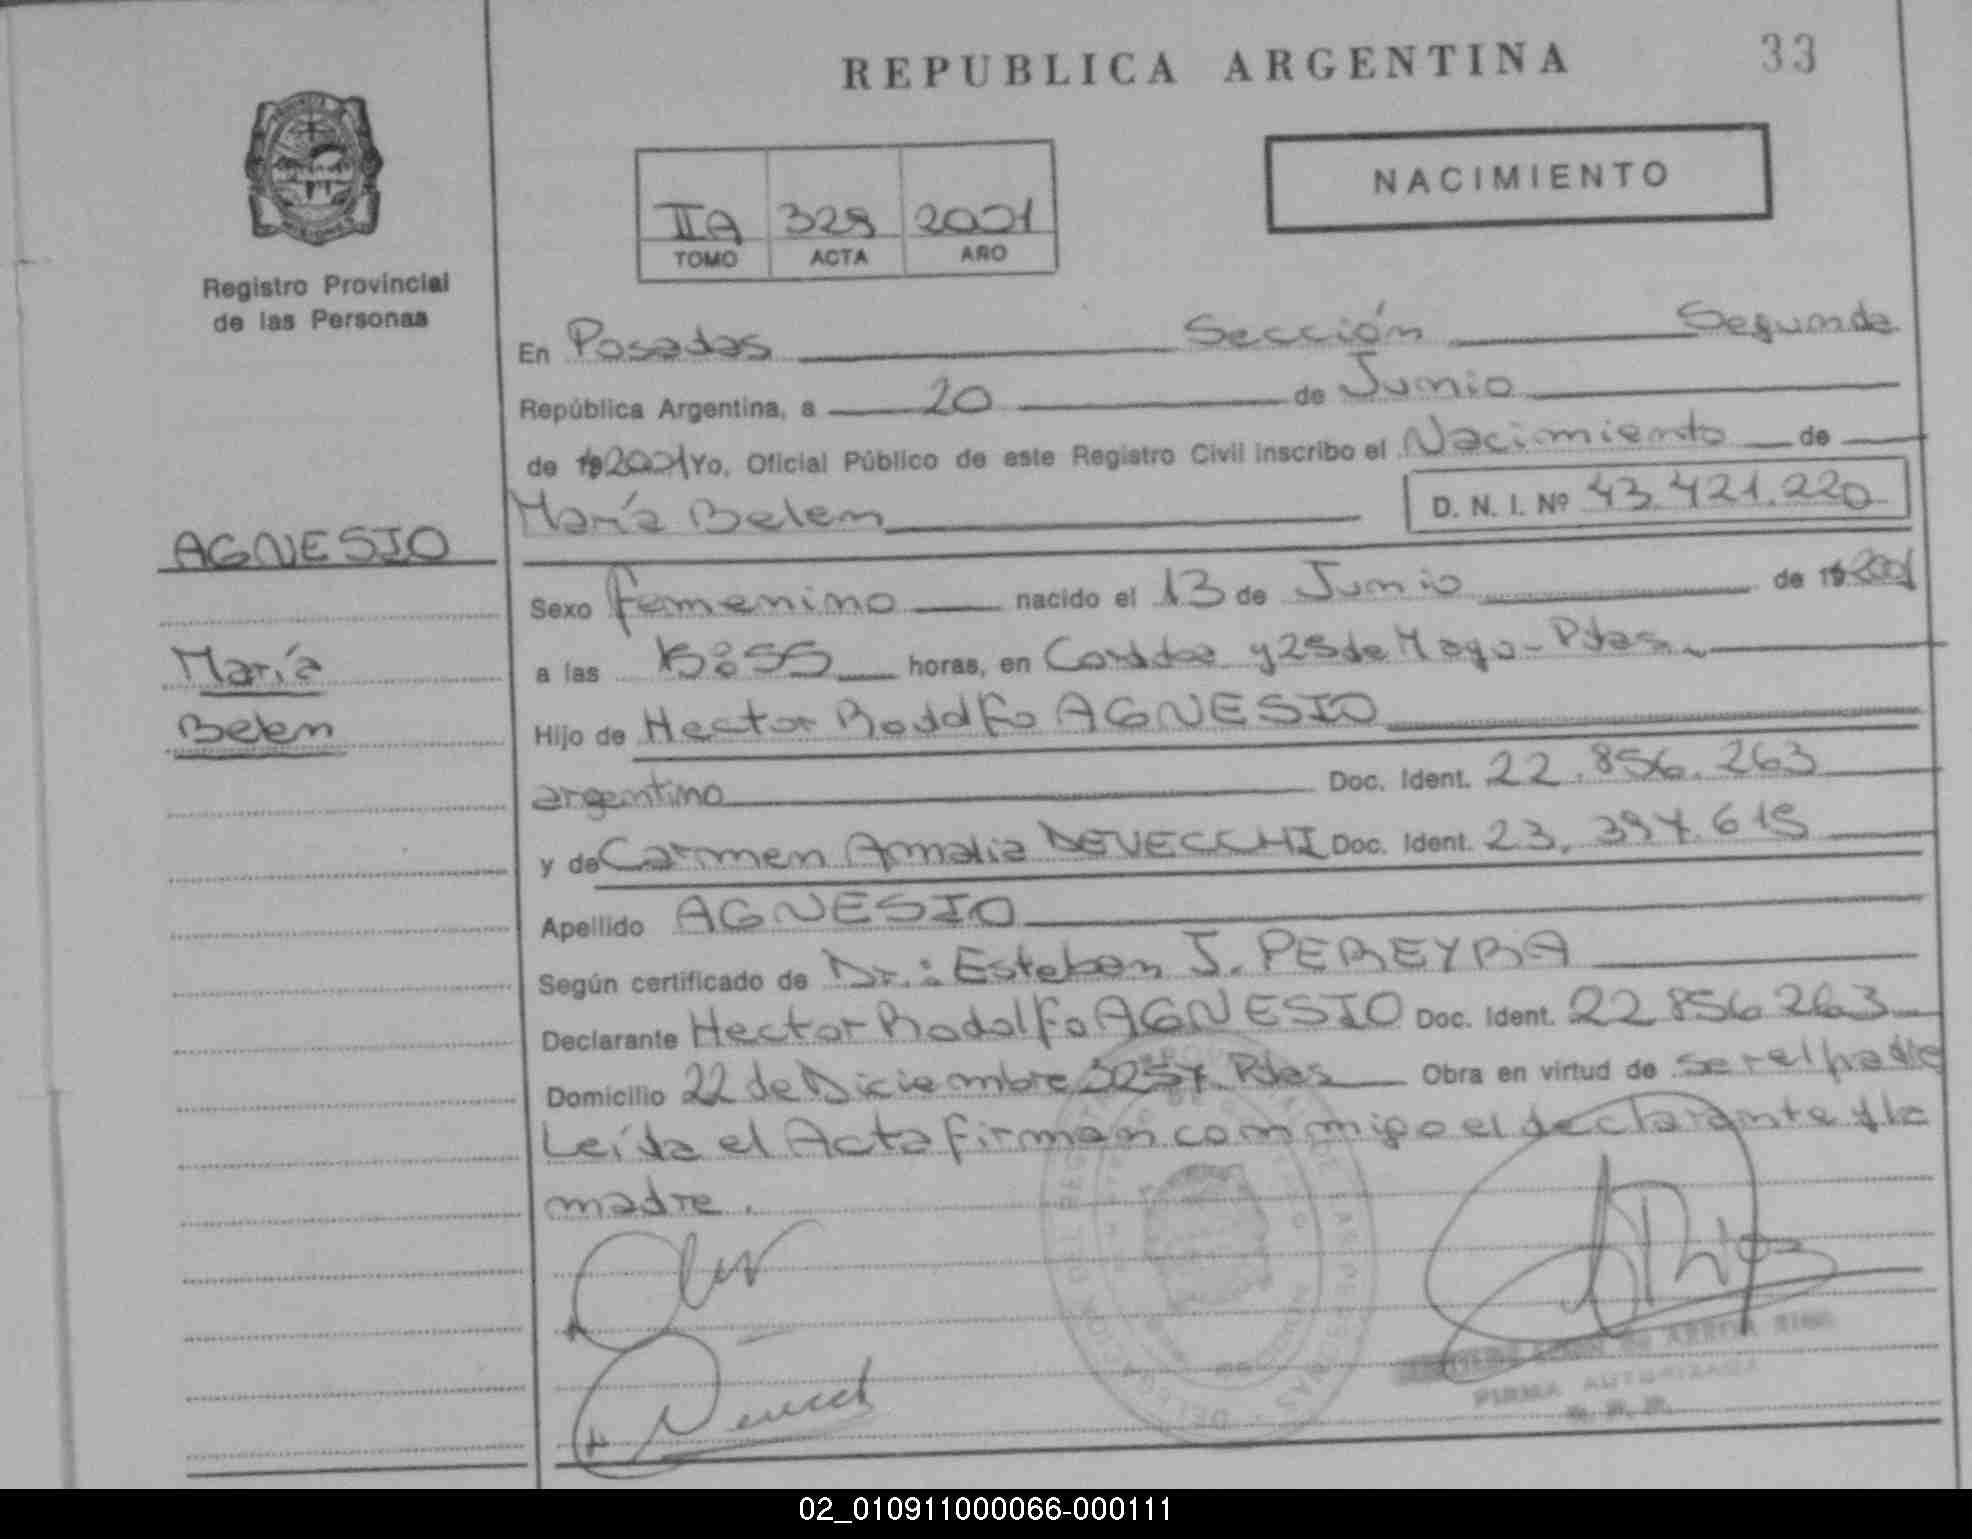 REPUBLICA ARGENTINA
33
NACIMIENTO
IIA 329 2001
TOMO ACTA AÑO
Registro Provincial
de las Personas
En Posadas Sección Segunda
República Argentina, a 20 de Junio
de 19 2001 Yo, Oficial Público de este Registro Civil inscribo el Nacimiento de
María Belen D. N. I. Nº 43.421.220
AGNESIO
María
Belen
Sexo femenino nacido el 13 de Junio de 19 2001
a las horas, en y 25 de Mayo - Pdas.
Hijo de Hector Rodolfo AGNESIO
argentino Doc. Ident. 22.856.263
y de Carmen Amalia DEVECCHI Doc. Ident. 23.397.615
Apellido AGNESIO
Según certificado de Dr.: Esteban J. PEREYRA
Declarante Hector Rodolfo AGNESIO Doc. Ident. 22856263
Domicilio 22 de Diciembre 3257 Pdas Obra en virtud de ser el padre
Leída el Acta firman conmigo el declarante y la
madre.
FIRMA AUTORIZADA
02_010911000066-000111